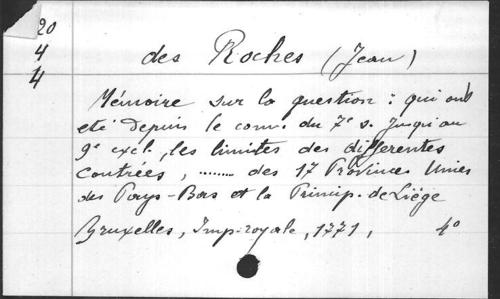 20
4
4
des Roches (Jean)
Mémoire sur la question : qui ont
eté depuis le com. du 7e s. jusqu'au
9e excl., les limites des differentes
contrées, ........ des 17 Provinces Unies
des Pays-Bas et la Princip. de Liége
Bruxelles, Imp. royale, 1771, 4o